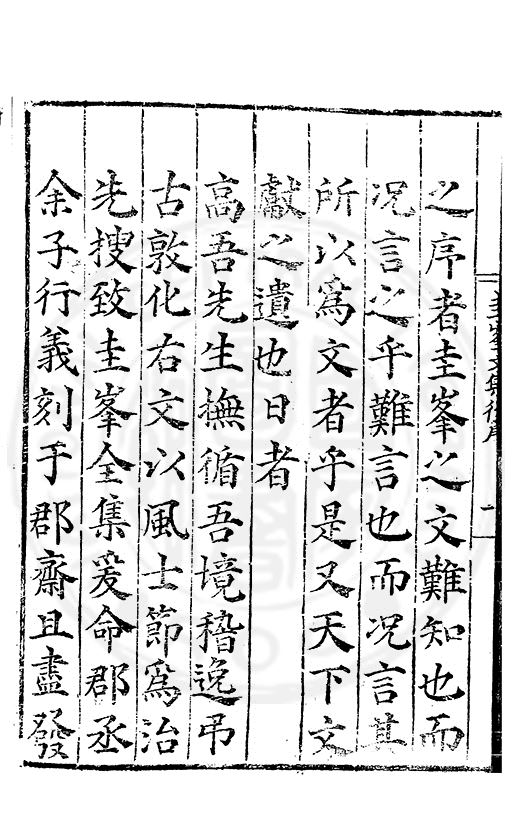 之序者圭峯之文難知也而
况言之乎難言也而况言其
所以爲文者乎是又天下文
獻之遺也日者
高吾先生撫循吾境稽逸弔
古敦化右文以風士節爲治
先搜致圭峯全集爰命郡丞
余子行義刻于郡齋且盡發